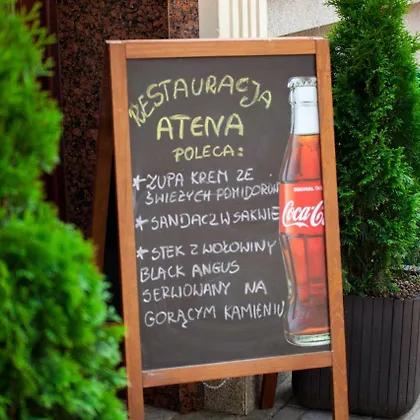 RESTAURACJA
ATENA
POLECA:
* ZUPA KREM ZE
ŚWIEŻYCH POMIDORÓW
* SANDACZ W SAKWIE
* STEK Z WOŁOWINY
BLACK ANGUS
SERWOWANY NA
GORĄCYM KAMIENIU
ORIGINAL
Coca-Co